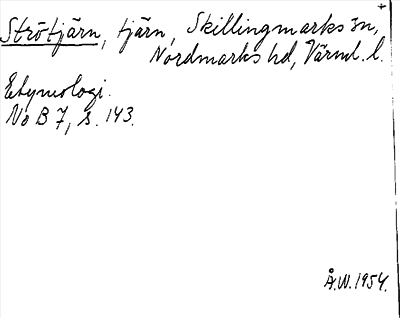 +
Strötjärn, tjärn, Skillingmarks sn,
Nordmarks hd, Värml. l.
Etymologi.
No B 7, s. 143.
Å.W. 1954.